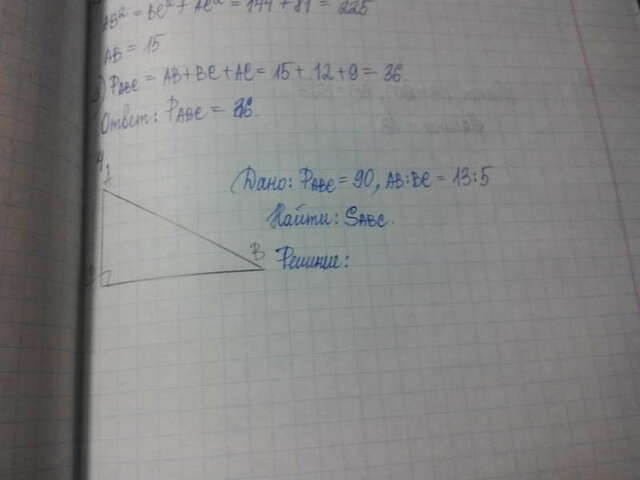 AB² = BC² + AC² = 144 + 81 = 225
AB = 15
) P ABC = AB + BC + AC = 15 + 12 + 9 = 36.
Ответ: P ABC = 36.
A
Дано: P ABC = 90, AB:BC = 13:5
Найти: S ABC.
B
Решение: